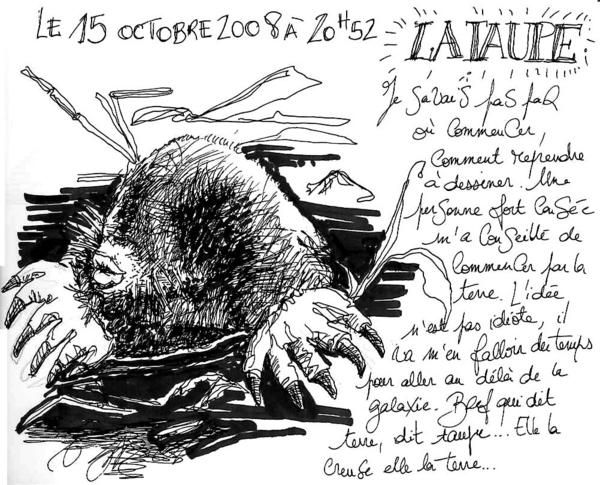 LE 15 OCTOBRE 2008 À 20H52
LA TAUPE
Je savais pas paR
où commenCer,
Comment reprendre
à dessiner. Une
personne fort Calée
m'a ConSeillé de
CommenCer par la
terre. L'idée
n'est pas idiote, il
va m'en falloir du temps
pour aller au délà de la
galaxie. Bref qui dit
terre, dit taupe... Elle la
Creuse elle la terre...